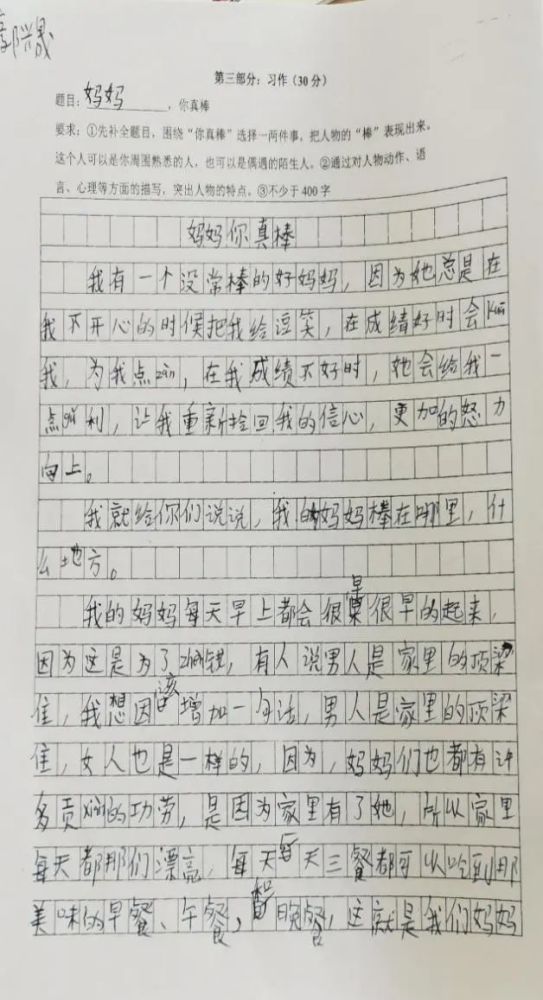 郭兴晟
第三部分：习作（30分）
题目：妈妈，你真棒
要求：①先补全题目，围绕“你真棒”选择一两件事，把人物的“棒”表现出来。
这个人可以是你周围熟悉的人，也可以是偶遇的陌生人。②通过对人物动作、语
言、心理等方面的描写，突出人物的特点。③不少于400字
妈妈你真棒
我有一个没常棒的好妈妈，因为她总是在
我不开心的时候把我给逗笑，在成绩好时会kuā
我，为我点zàn，在我成绩不好时，她会给我一
点gǔ利，让我重新捡回我的信心，更加的怒力
向上。
我就给你们说说，我的妈妈棒在哪里，什
么地方。
我的妈妈每天早上都会很早很早的起来，
因为这是为了zhèng钱，有人说男人是家里的顶梁
住，我想因该增加一句话，男人是家里的顶梁
住，女人也是一样的，因为，妈妈们也都有许
多贡xiàn的功劳，是因为家里有了她，所以家里
每天都那们漂亮，每天每天三餐都可以吃到那
美味的早餐、午餐，和晚餐，这就是我们妈妈